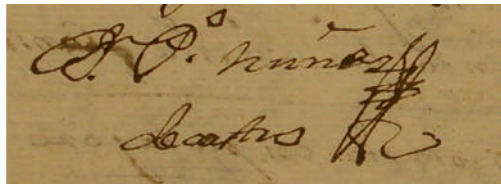 Fr. P.º nuñes
decastro